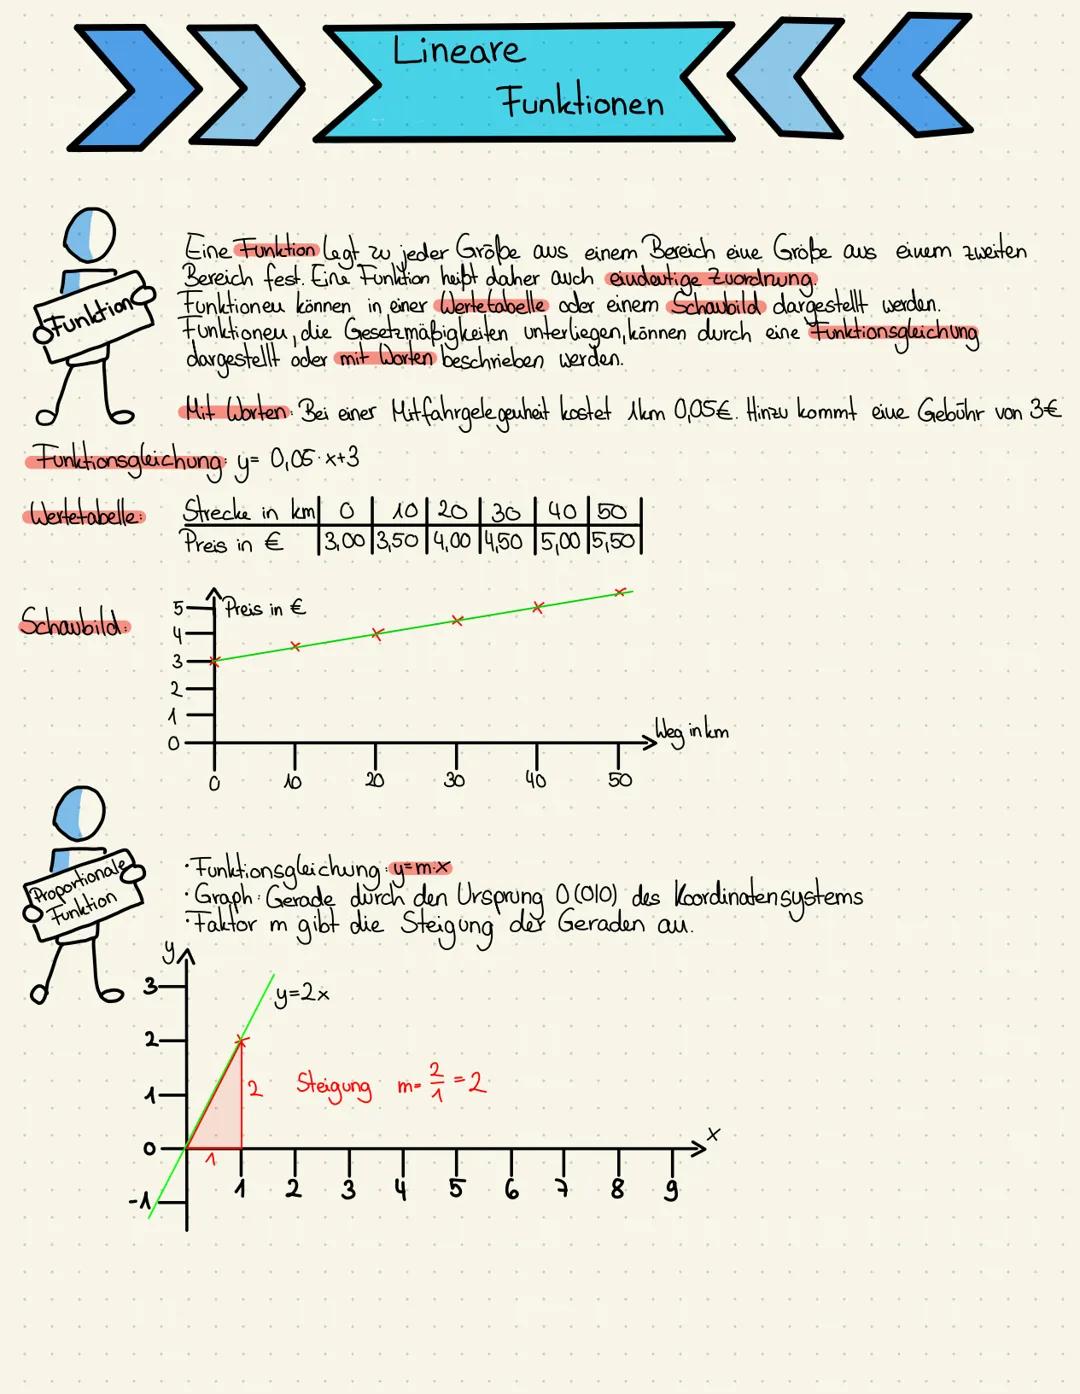 Lineare
Funktionen
Funktion
Eine Funktion legt zu jeder Größe aus einem Bereich eine Größe aus einem zweiten
Bereich fest. Eine Funktion heißt daher auch eindeutige Zuordnung.
Funktionen können in einer Wertetabelle oder einem Schaubild dargestellt werden.
Funktionen, die Gesetzmäßigkeiten unterliegen, können durch eine Funktionsgleichung
dargestellt oder mit Worten beschrieben werden.
Mit Worten: Bei einer Mitfahrgelegenheit kostet 1km 0,05€. Hinzu kommt eine Gebühr von 3€
Funktionsgleichung: y= 0,05·x+3
Wertetabelle: Strecke in km 0 10 20 30 40 50
Preis in € 3,00 3,50 4,00 4,50 5,00 5,50
Schaubild:
Preis in €
5
4
3
2
1
0
Weg in km
0 10 20 30 40 50
Proportionale
Funktion
·Funktionsgleichung: y=m·x
·Graph: Gerade durch den Ursprung O(0|0) des Koordinatensystems
·Faktor m gibt die Steigung der Geraden an.
y
3
y=2x
2
2 Steigung m= 2/1 =2
1
0
x
1
1 2 3 4 5 6 7 8 9
-1